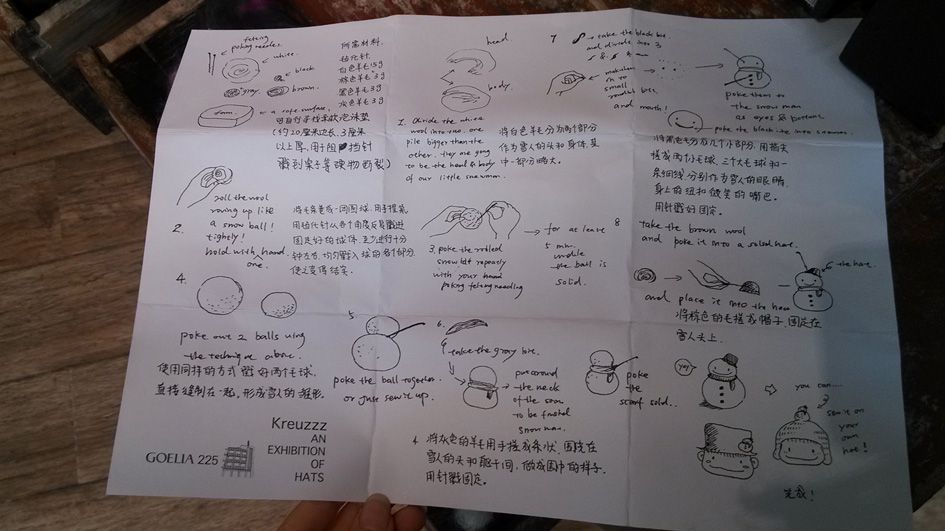 felting
poking needles
white
black
gray.
brown.
foam.
a safe surface.
所需材料.
毡化针
白色羊毛15g
棕色羊毛3g
黑色羊毛3g
灰色羊毛3g
可自行寻找车软泡沫垫
(约20厘米之长, 3厘米
以上厚,用于阻挡针
戳到桌子等硬物断裂)
head.
body.
1. Divide the white
wool into two. one
pile bigger than the
other. they are going
to be the head & body
of our little snowman.
将白色羊毛分为两个部分
作为雪人的头和身体,其
中一部分略大。
2.
roll the wool
roving up like
a snow ball!
tightly!
hold with one hand.
将毛条卷成一个圆球,用手捏紧,
3. poke the rolled
snowball repeatly
with your hand
poking felting needling
for at leave
5 min.
untile
the ball is
solid.
4.
poke out 2 balls using
the technique above.
使用同样的方式戳好两个毛球.
直接缝制在一起,形成雪人的雏形.
5
poke the ball together
or just sew it up.
6.
take the gray bit.
put around
the neck
of the soon
to be finished
snowman.
poke
the
scarf solid..
4. 将灰色的羊毛用手搓成条状,围绕在
雪人的头和躯干间,做成围巾的样子.
用针戳固定。
7
take the black bit.
and divide into 3
make them
in to
small
round bits
and mouth!
poke them to
the snow man
as eyes & bottons
poke the black line into snowman.
将黑色毛分成几个小部分,用指尖
搓成两个小毛球,三个大毛球和一
条细线分别作为雪人的眼睛,
身上的纽和微笑的嘴巴。
用针戳好固定。
8
take the brown wool
and poke it into a solid hat.
the hat.
and place it into the head
将棕色的毛搓成帽子,固定在
雪人头上.
yay!
you can...
sew it on
your
own
hat!
完成!
Kreuzzz
AN
EXHIBITION
OF
HATS
GOELIA 225